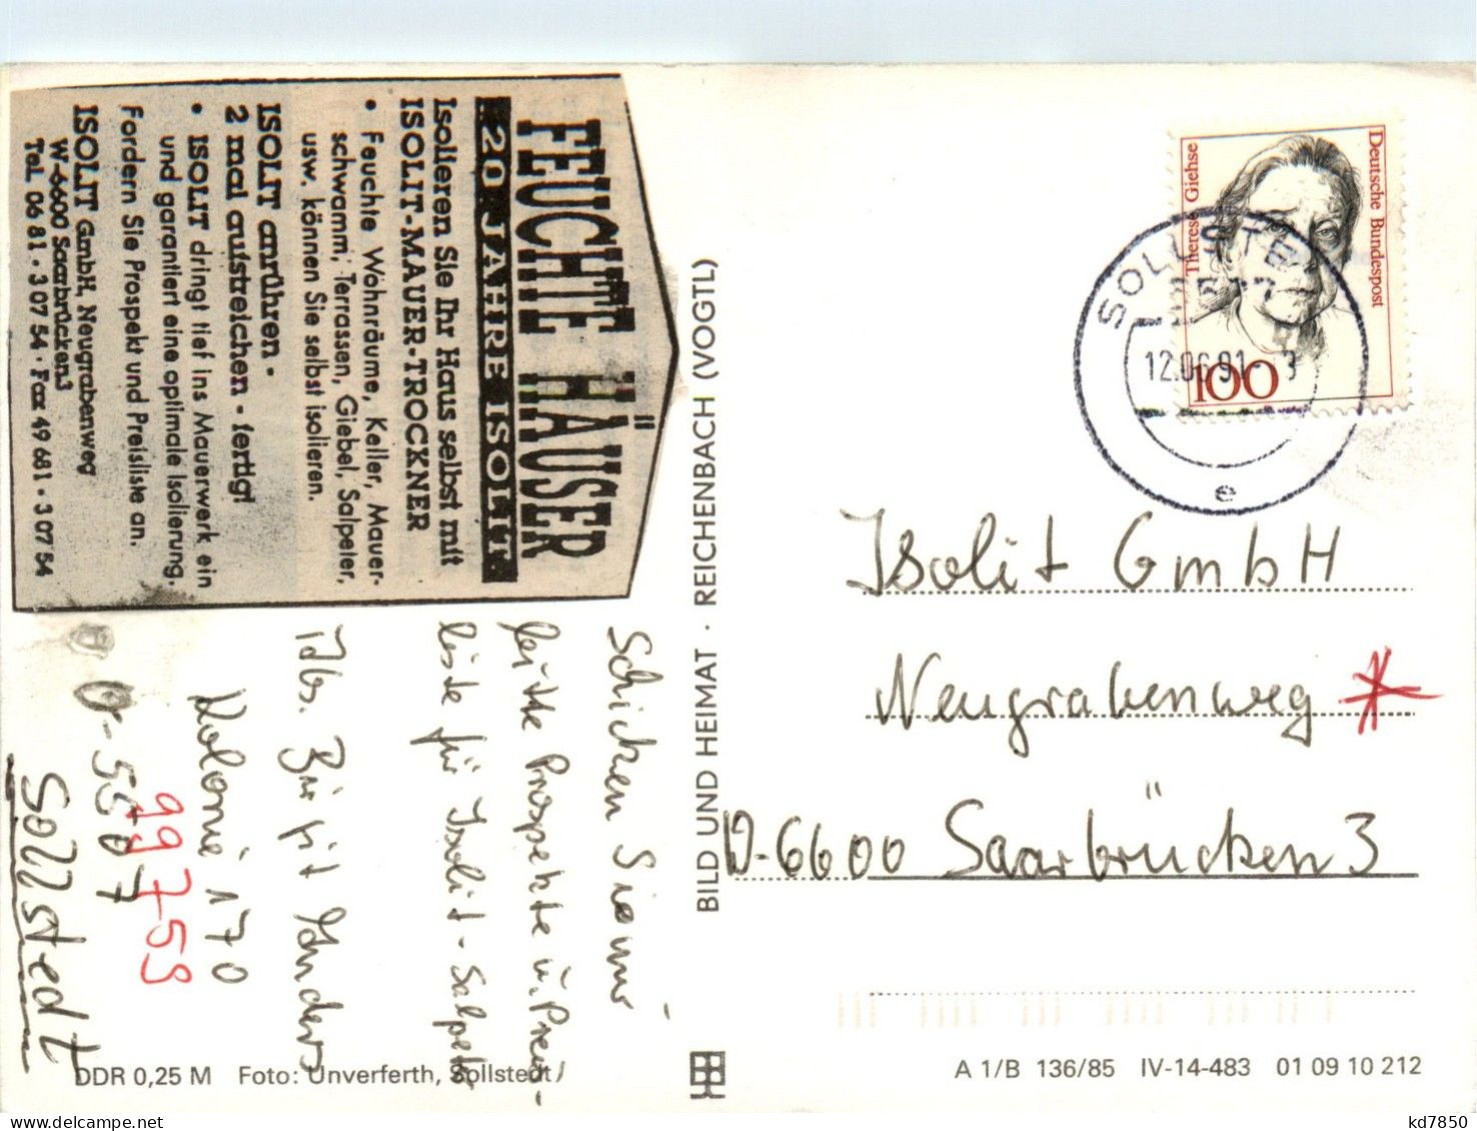 FEUCHTE HÄUSER
20 JAHRE ISOLIT
Isolieren Sie Ihr Haus selbst mit
ISOLIT-MAUER-TROCKNER
• Feuchte Wohnräume, Keller, Mauer-
schwamm, Terrassen, Giebel, Salpeter,
usw. können Sie selbst isolieren.
ISOLIT anrühren -
2 mal aufstreichen - fertig!
• ISOLIT dringt tief ins Mauerwerk ein
und garantiert eine optimale Isolierung.
Fordern Sie Prospekt und Preisliste an.
ISOLIT GmbH, Neugrabenweg
W-6600 Saarbrücken3
Tel. 06 81 - 3 07 54 · Fax 49 681 - 3 07 54
Schicken Sie mir
bitte Prospekte u. Preis-
liste für Isolit-Salpeter
Kolonie 170
O-5507
99759
Sollstedt
DDR 0,25 M Foto: Unverferth, Sollstedt
BILD UND HEIMAT · REICHENBACH (VOGTL)
Deutsche Bundespost
Therese Giehse
100
SOLLSTEDT
12.06.91
e
Isolit GmbH
Neugrabenweg
D-6600 Saarbrücken 3
A 1/B 136/85 IV-14-483 01 09 10 212
kd7850